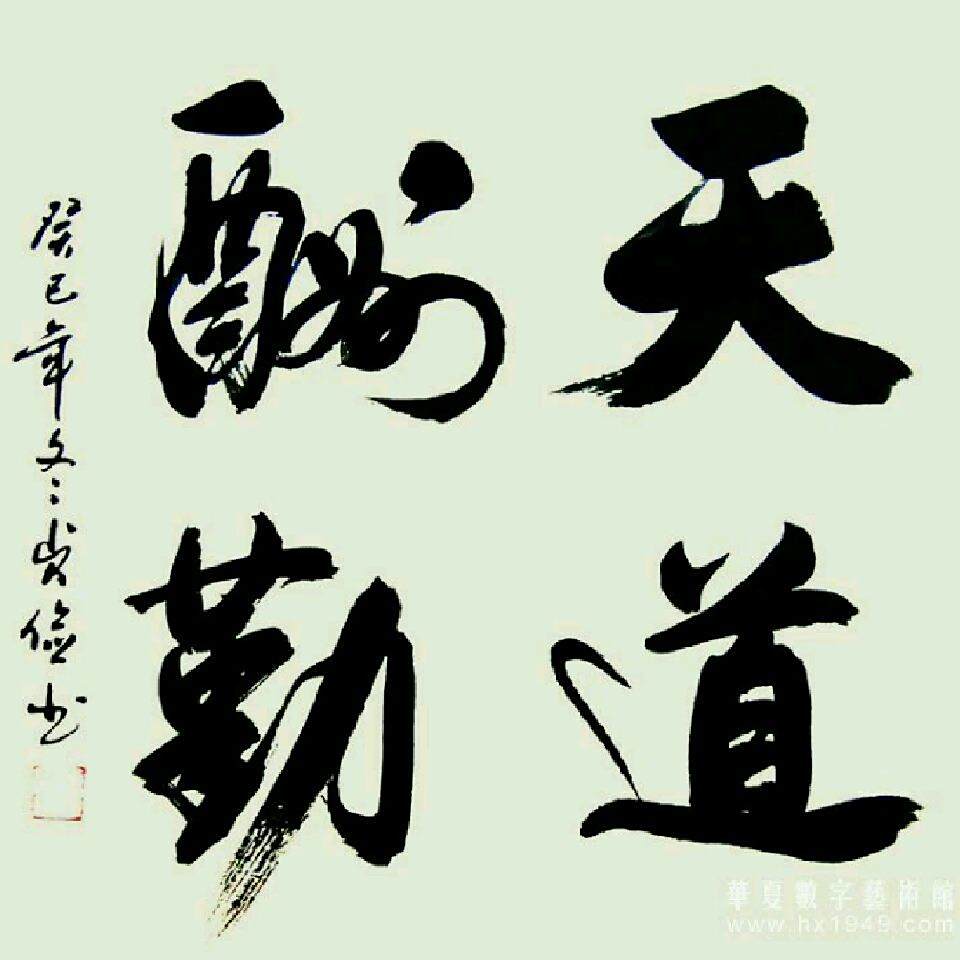 天道
酬勤
癸巳年冬俭书
華夏數字藝術館
www.hx1949.com